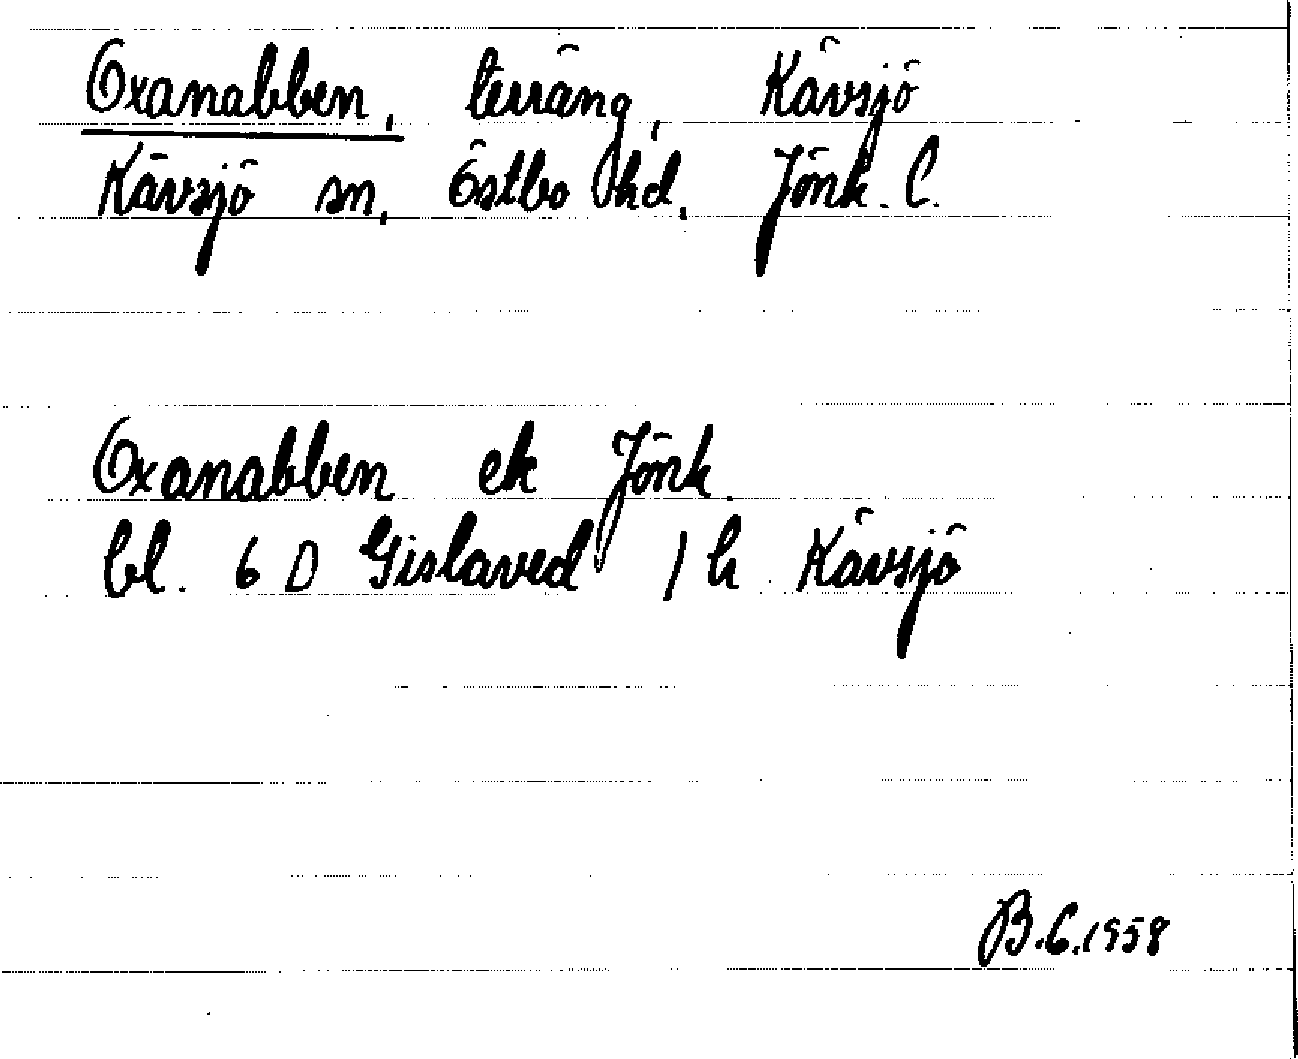 Oxanabben, terräng, Kävsjö
Kävsjö sn, Östbo hd, Jönk. l.
Oxanabben ek Jönk.
bl. 6 D Gislaved 1 h Kävsjö
B.C. 1958